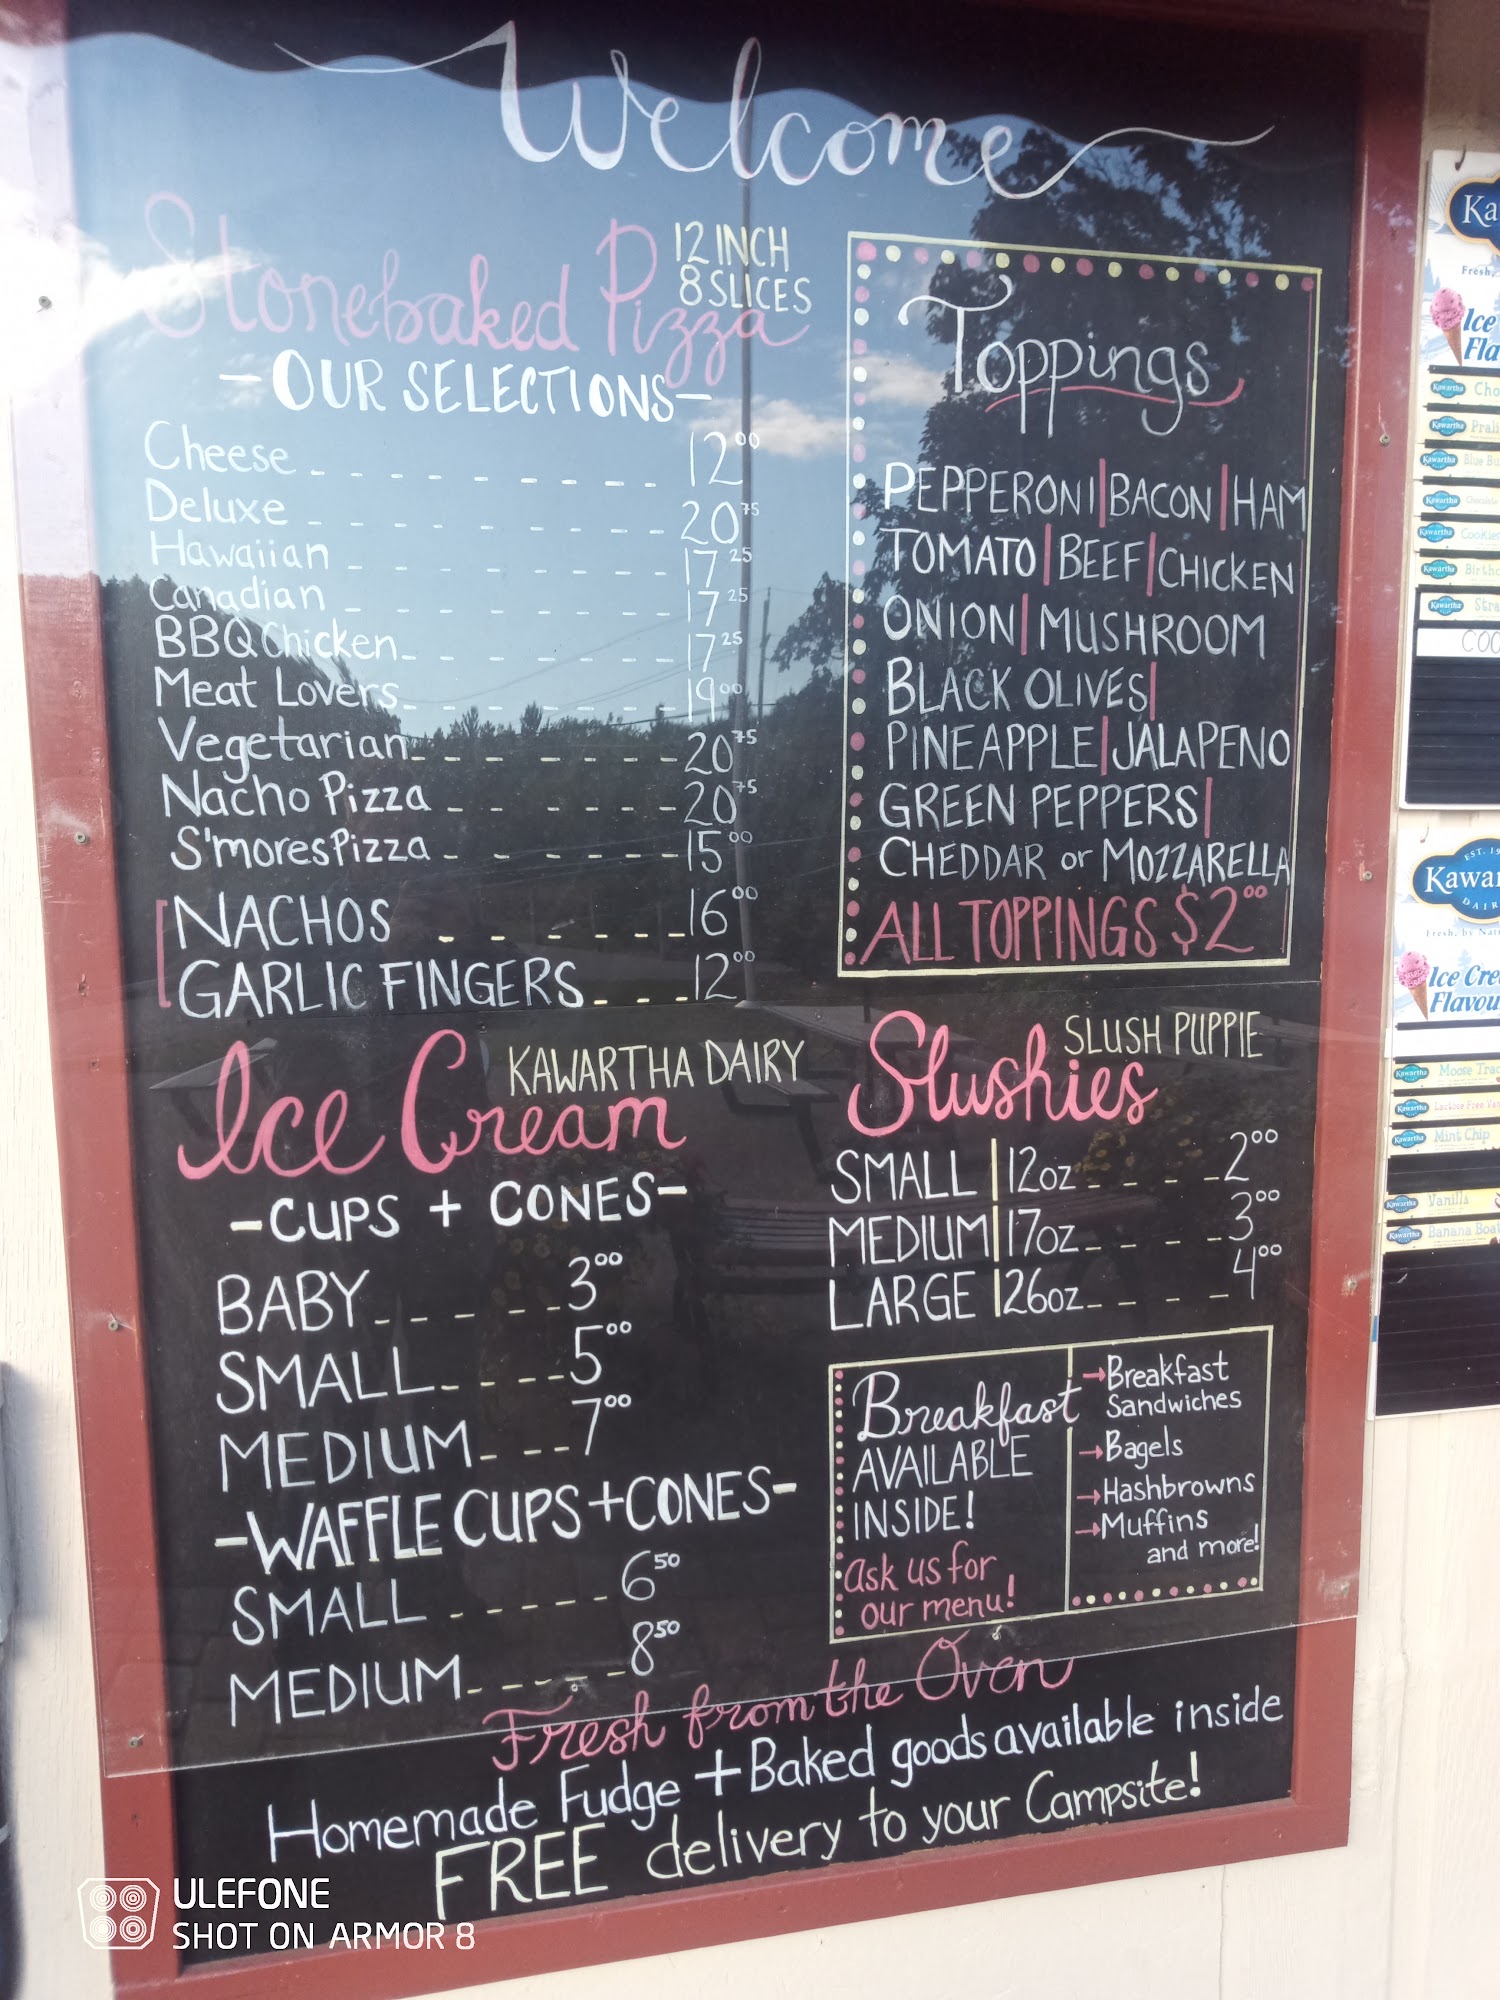 Welcome
Stonebaked Pizza
12 INCH
8 SLICES
-OUR SELECTIONS-
Cheese 12⁰⁰
Deluxe 20⁷⁵
Hawaiian 17²⁵
Canadian 17²⁵
BBQ Chicken 17²⁵
Meat Lovers 19⁰⁰
Vegetarian 20⁷⁵
Nacho Pizza 20⁷⁵
S'mores Pizza 15⁰⁰
NACHOS 16⁰⁰
GARLIC FINGERS 12⁰⁰
Toppings
PEPPERONI|BACON|HAM
TOMATO|BEEF|CHICKEN
ONION|MUSHROOM
BLACK OLIVES|
PINEAPPLE|JALAPENO
GREEN PEPPERS|
CHEDDAR or MOZZARELLA
ALL TOPPINGS $2⁰⁰
Ice Cream
KAWARTHA DAIRY
-CUPS + CONES-
BABY 3⁰⁰
SMALL 5⁰⁰
MEDIUM 7⁰⁰
-WAFFLE CUPS + CONES-
SMALL 6⁵⁰
MEDIUM 8⁵⁰
Slushies
SLUSH PUPPIE
SMALL | 12oz 2⁰⁰
MEDIUM | 17oz 3⁰⁰
LARGE | 26oz 4⁰⁰
Breakfast
AVAILABLE
INSIDE!
Ask us for
our menu!
→Breakfast
Sandwiches
→Bagels
→Hashbrowns
→Muffins
and more!
Fresh from the Oven
Homemade Fudge + Baked goods available inside
FREE delivery to your Campsite!
Ka
Fresh,
Ice
Fla
Kawartha Cho
Kawartha Prali
Kawartha Blue Bu
Kawartha
Kawartha Cookies
Kawartha Birthd
Kawartha Stra
COO
EST. 19
Kawar
DAIR
Fresh, by Nat
Ice Cre
Flavou
Kawartha Moose Trac
Kawartha Lactose Free Van
Kawartha Mint Chip
Kawartha Vanilla
Kawartha Banana Boat
ULEFONE
SHOT ON ARMOR 8